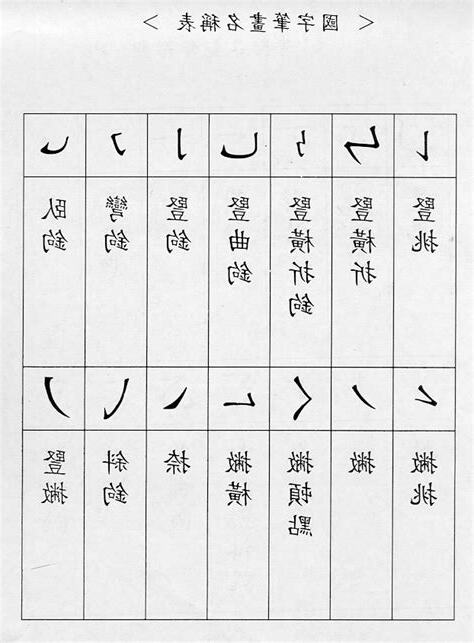 ＜國字筆畫名稱表＞
豎挑
豎橫折
豎橫折鉤
豎曲鉤
豎鉤
彎鉤
臥鉤
撇挑
撇
撇頓點
撇橫
捺
斜鉤
豎撇